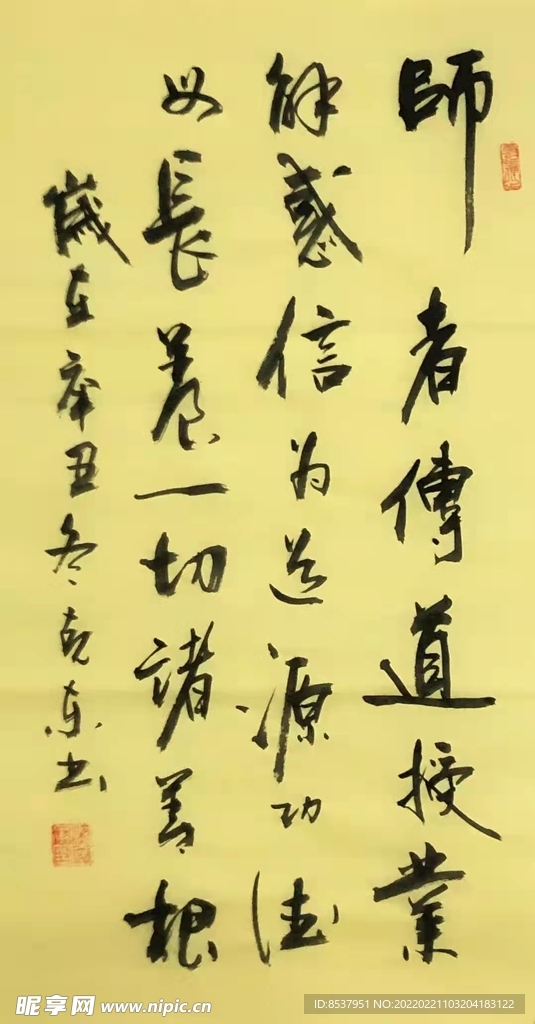 師者傳道授業
解惑信为道源功德
母長養一切諸善根
歲在辛丑冬克东书
昵享网 www.nipic.cn
ID:8537951 NO:20220221103204183122